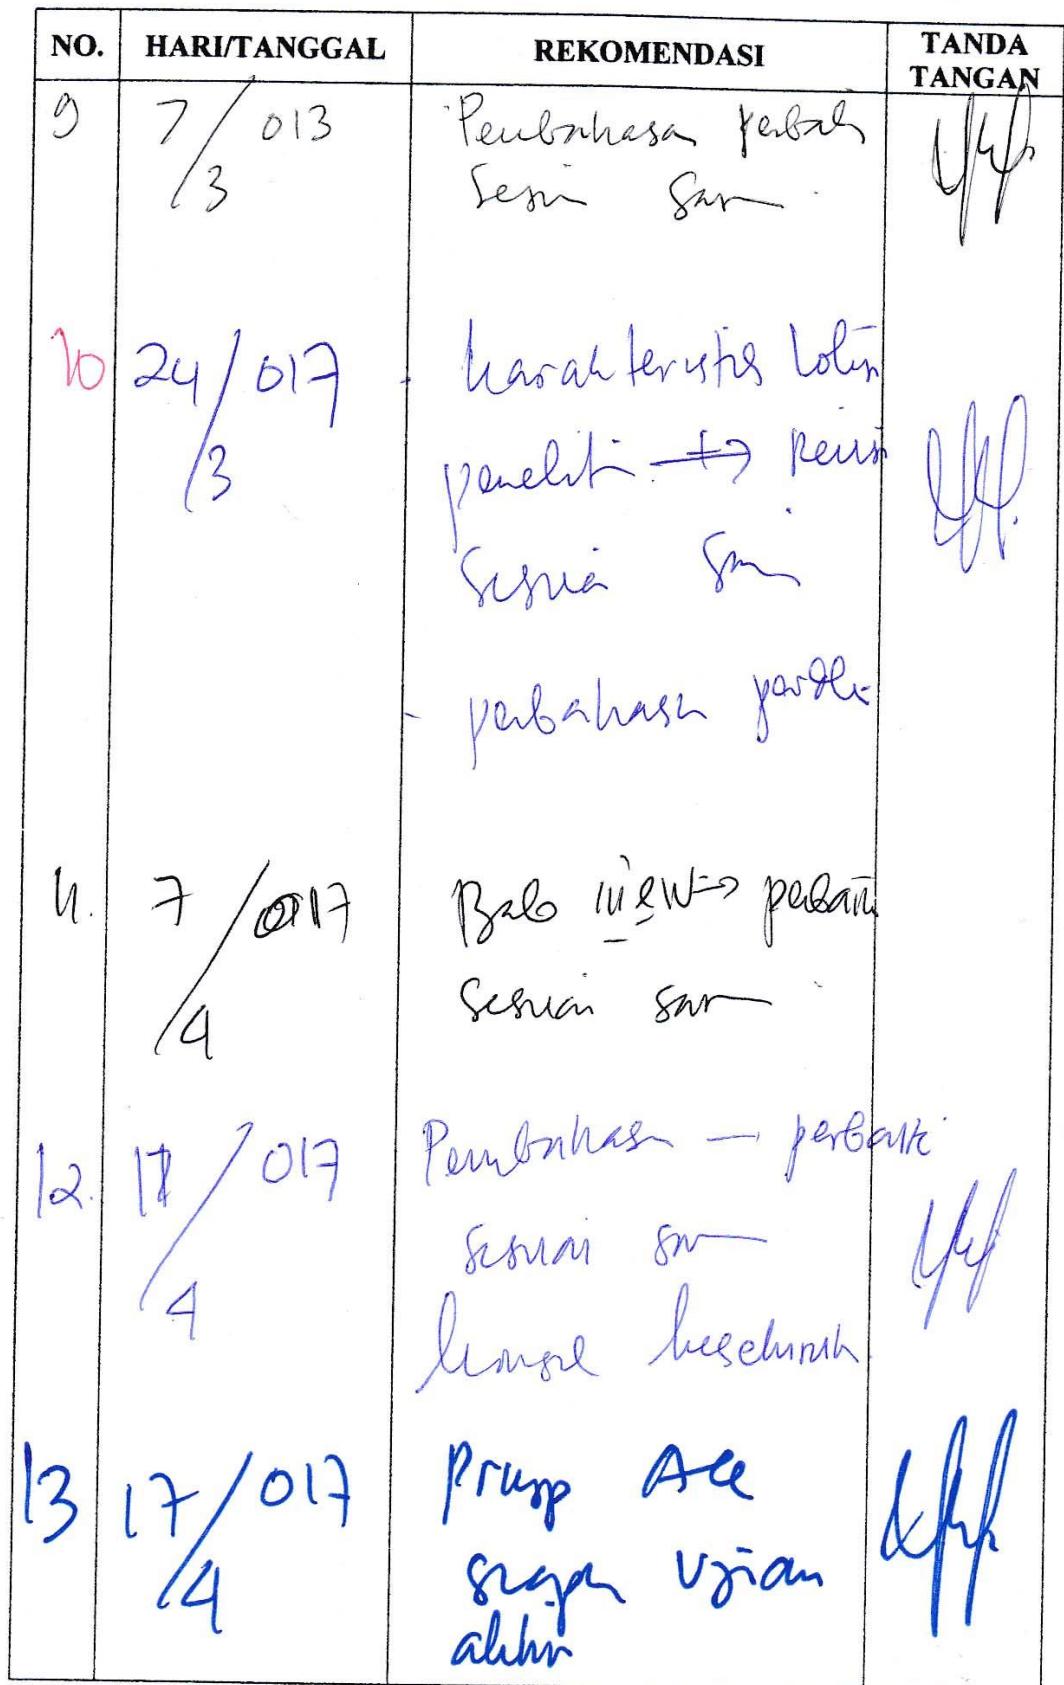 NO. HARI/TANGGAL REKOMENDASI TANDA TANGAN
9 7/3 013 Pembahasan perbaiki
sesuai saran
10 24/3 017 - karakteristik lokasi
penelitian → Revisi
sesuai saran
- pembahasan perbaiki
11. 7/4 017 Bab → perbaiki
sesuai saran
12. 11/4 017 Pembahasan — perbaiki
sesuai saran
13 17/4 017 Prinsip Acc
siapkan Ujian
akhir